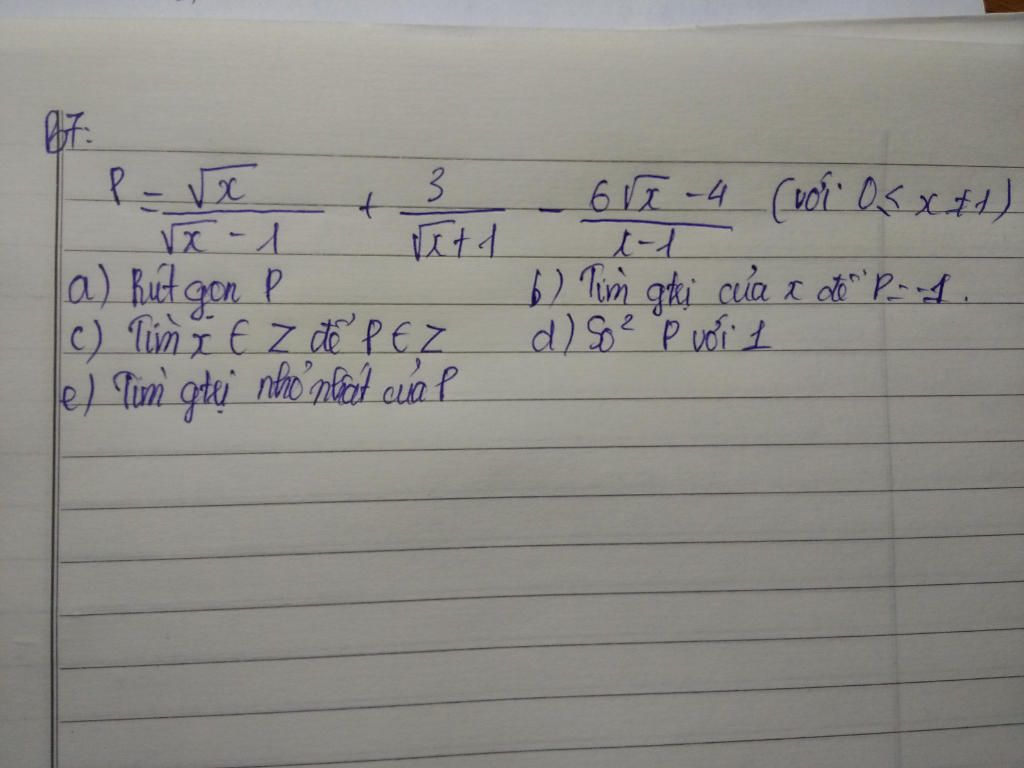 B7:
P = √x / (√x - 1) + 3 / (√x + 1) - (6√x - 4) / (x - 1) (với 0 ≤ x ≠ 1)
a) Rút gọn P b) Tìm gtrị của x để P = -1.
c) Tìm x ∈ Z để P ∈ Z d) So² P với 1
e) Tìm gtrị nhỏ nhất của P